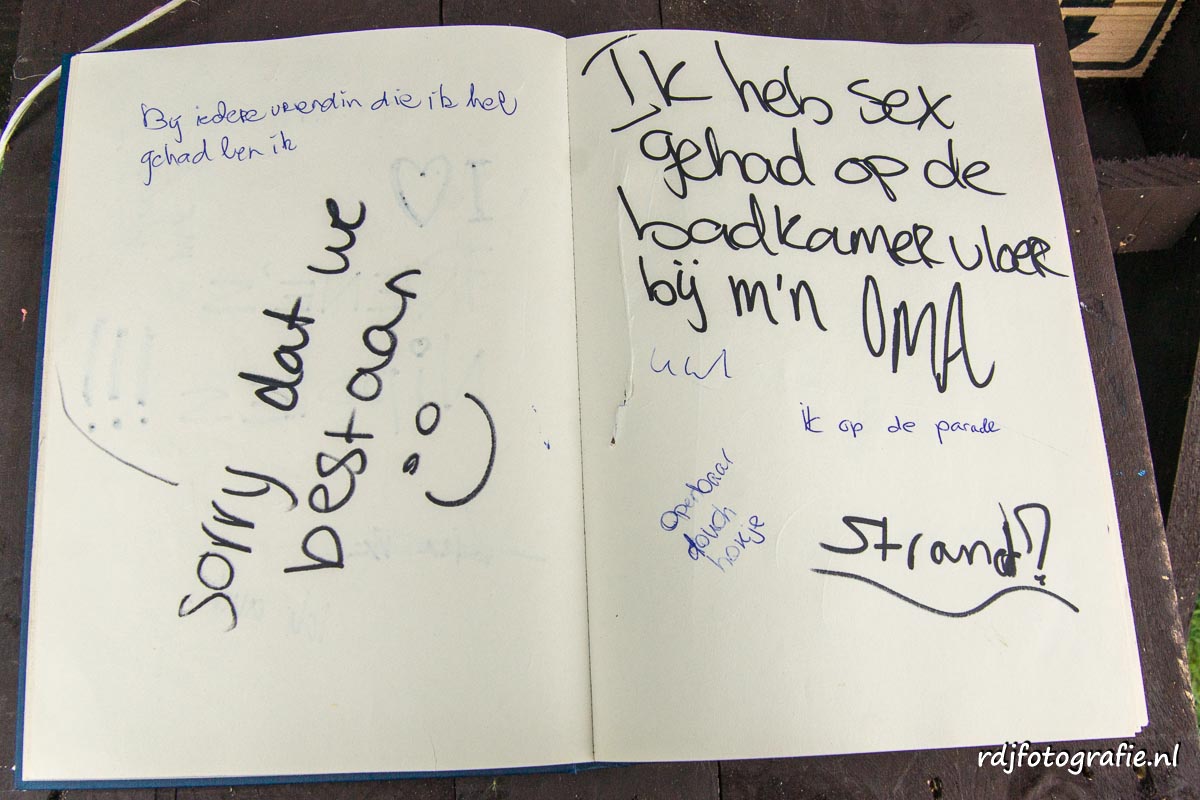 Bij iedere vriendin die ik heb
gehad ben ik
Sorry dat we
bestaan
Ik heb sex
gehad op de
badkamer vloer
bij m'n OMA
ik op de parade
Openbaar
douch
hokje
Strand?
rdjfotografie.nl